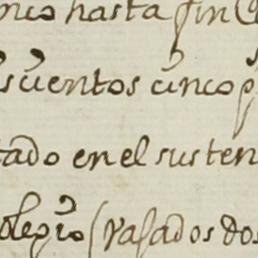 nco hasta fin C
scientos cinco p
tado en el susten
olegio (rasados dos